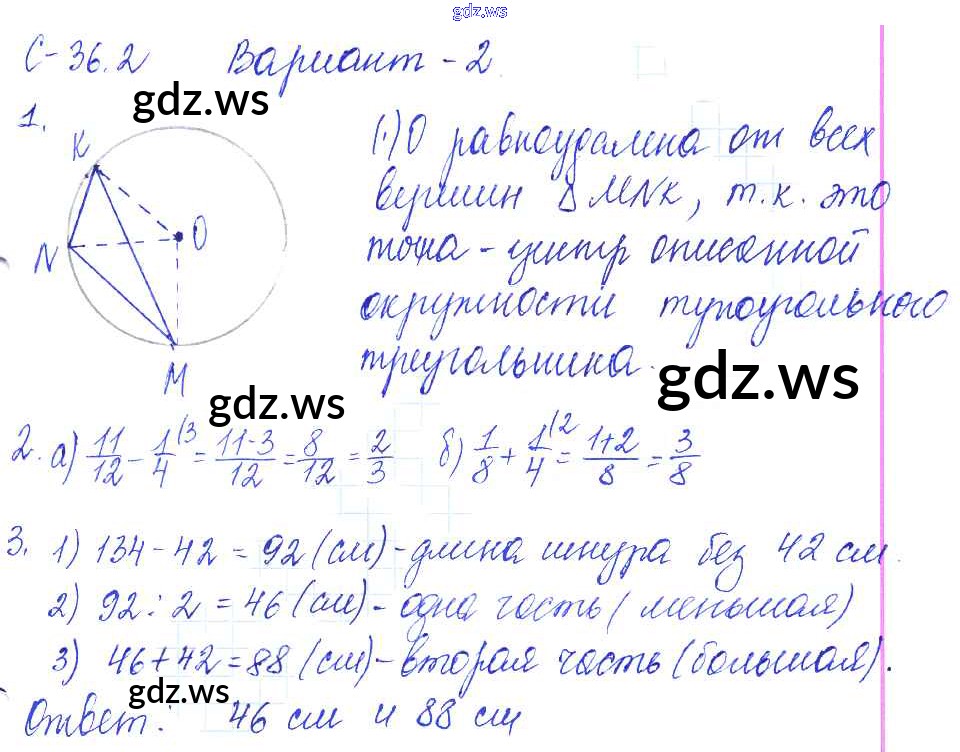 gdz.ws
С-36.2 Вариант - 2
gdz.ws
1.
K
N
O
M
(·) О равноудалена от всех
вершин Δ MNK, т.к. это
точка - центр описанной
окружности тупоугольного
треугольника.
gdz.ws
gdz.ws
2. а) 11/12 - 1/4 (3 = 11-3/12 = 8/12 = 2/3 б) 1/8 + 1/4 (2 = 1+2/8 = 3/8
3. 1) 134 - 42 = 92 (см) - длина шнура без 42 см.
2) 92 : 2 = 46 (см) - одна часть (меньшая)
3) 46 + 42 = 88 (см) - вторая часть (большая).
gdz.ws
Ответ: 46 см и 88 см